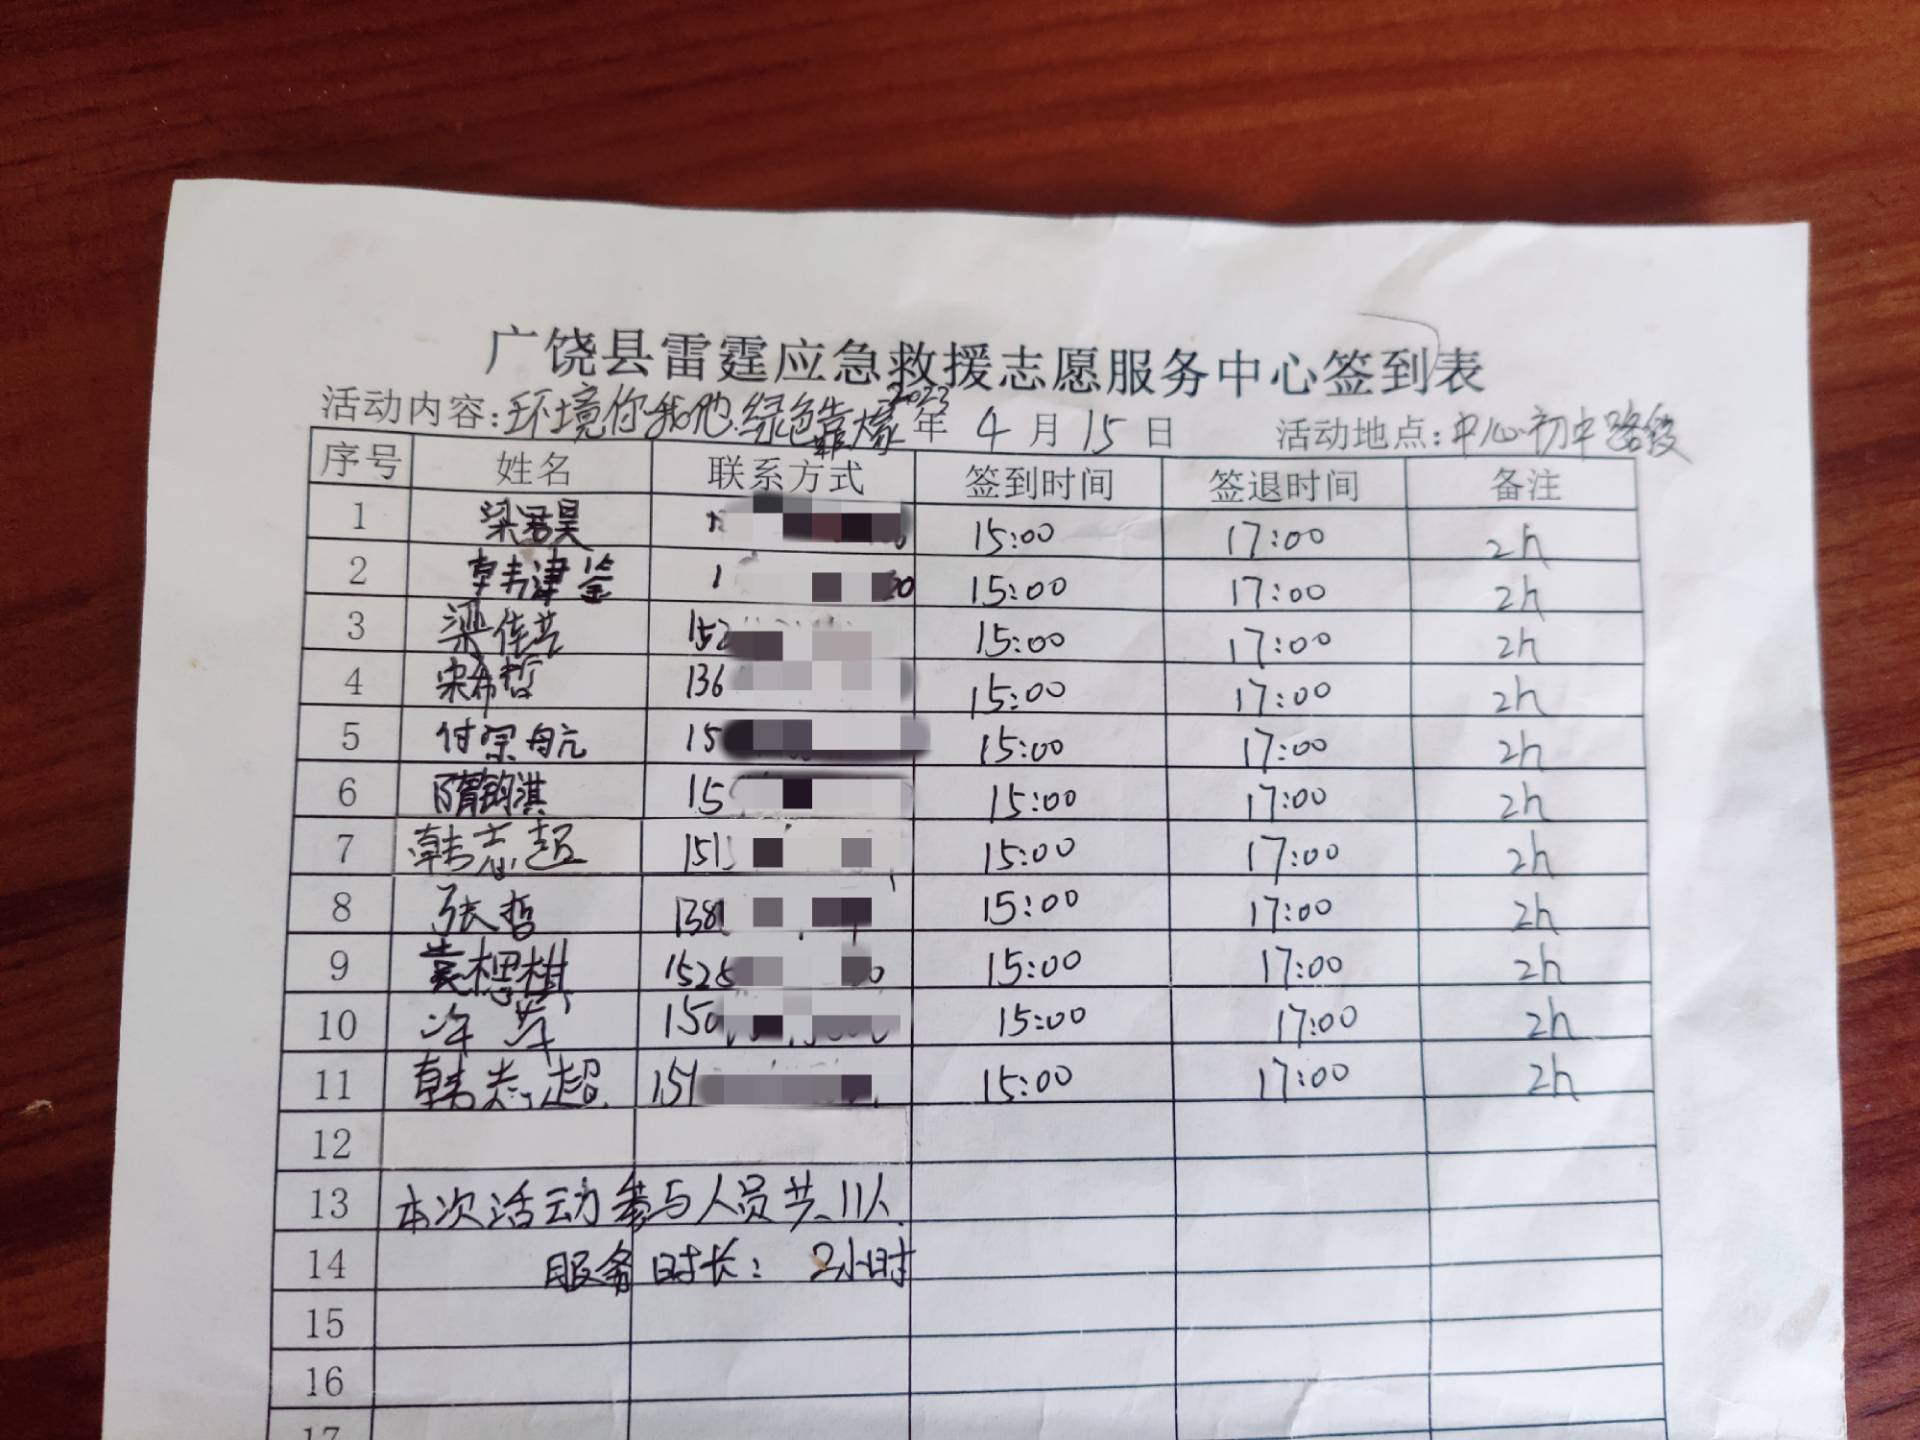 广饶县雷霆应急救援志愿服务中心签到表
活动内容:环境你我他.绿色靠大家 2023年 4月15日 活动地点:中心初中路段
序号 姓名 联系方式 签到时间 签退时间 备注
1 梁君昊 15:00 17:00 2h
2 韩津鉴 1 15:00 17:00 2h
3 梁佳艺 152 15:00 17:00 2h
4 宋希哲 136 15:00 17:00 2h
5 付宗航 15 15:00 17:00 2h
6 隋韵淇 15 15:00 17:00 2h
7 韩志超 151 15:00 17:00 2h
8 张哲 138 15:00 17:00 2h
9 1525 15:00 17:00 2h
10 150 15:00 17:00 2h
11 韩志超 151 15:00 17:00 2h
12
13 本次活动参与人员共11人
14 服务时长: 2小时
15
16
17